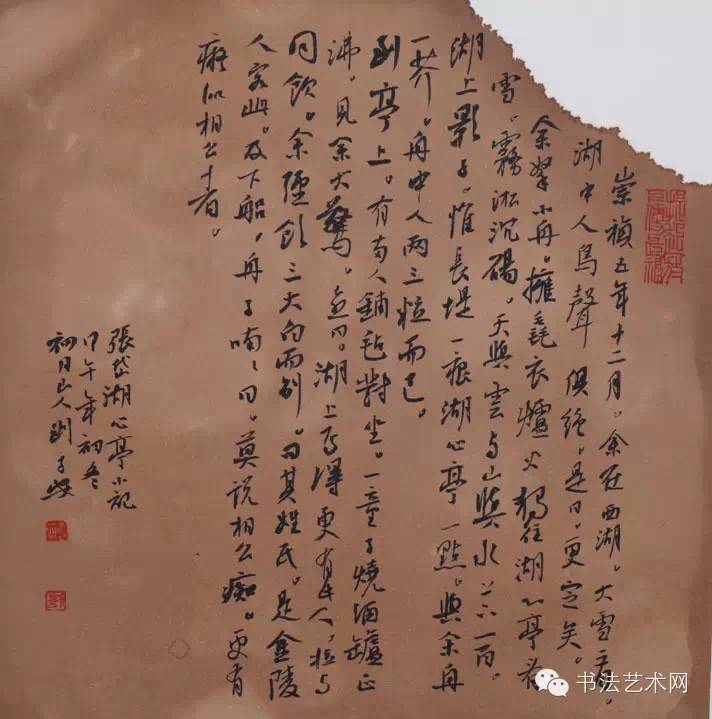 崇禎五年十二月。余在西湖。大雪三日。
湖中人鳥聲俱絕。是日。更定矣。
余拏小舟。擁毳衣爐火獨往湖心亭看
雪。霧淞沉碭。天與雲与山與水上下一白。
湖上影子。惟長堤一痕湖心亭一點。與余舟
一芥。舟中人兩三粒而已。
到亭上。有兩人鋪毡對坐。一童子燒酒罏正
沸。見余大驚。喜曰。湖上焉得更有此人。拉与
同飲。余強飲三大白而別。問其姓氏。是金陵
人客此。及下船。舟子喃〻曰。莫說相公痴。更有
癡似相公者。
張岱湖心亭小記
甲午年初冬
初月山人劉子
书法艺术网